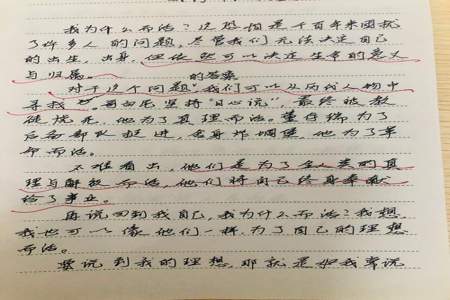 我为什么而活？这恐怕是千百年来困扰
了许多人的问题，尽管我们无法决定自己
的出生，出身，但依然可以决定生命的意义
与归属。
的答案
对于这个问题，我们可以从历代人物中
寻找。哥白尼坚持“日心说”，最终被教
徒烧死，他为了真理而活。董存瑞为了
后备部队挺进，舍身炸碉堡，他为了革
命而活。
不难看出，他们是为了全人类的真
理与解放而活，他们将自己终身奉献
给了事业。
再说回到我自己，我为什么而活？我想，
我也可以像他们一样，为了自己的理想
而活。
要说到我的理想，那就是如我常说